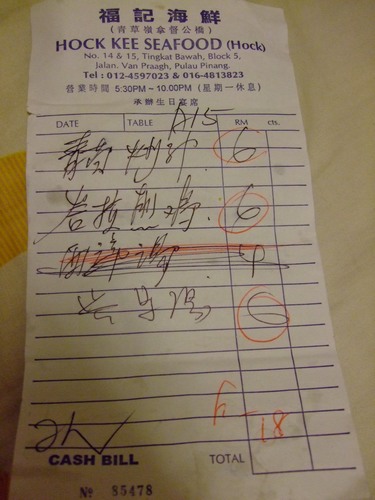 福記海鮮
(青草嶺拿督公橋)
HOCK KEE SEAFOOD (Hock)
No. 14 & 15, Tingkat Bawah, Block 5,
Jalan Van Praagh, Pulau Pinang.
Tel : 012-4597023 & 016-4813823
營業時間 5:30PM ~ 10.00PM (星期一休息)
承辦生日宴席
DATE TABLE A15 RM cts.
6
6
4
6
18
CASH BILL TOTAL
No 85478